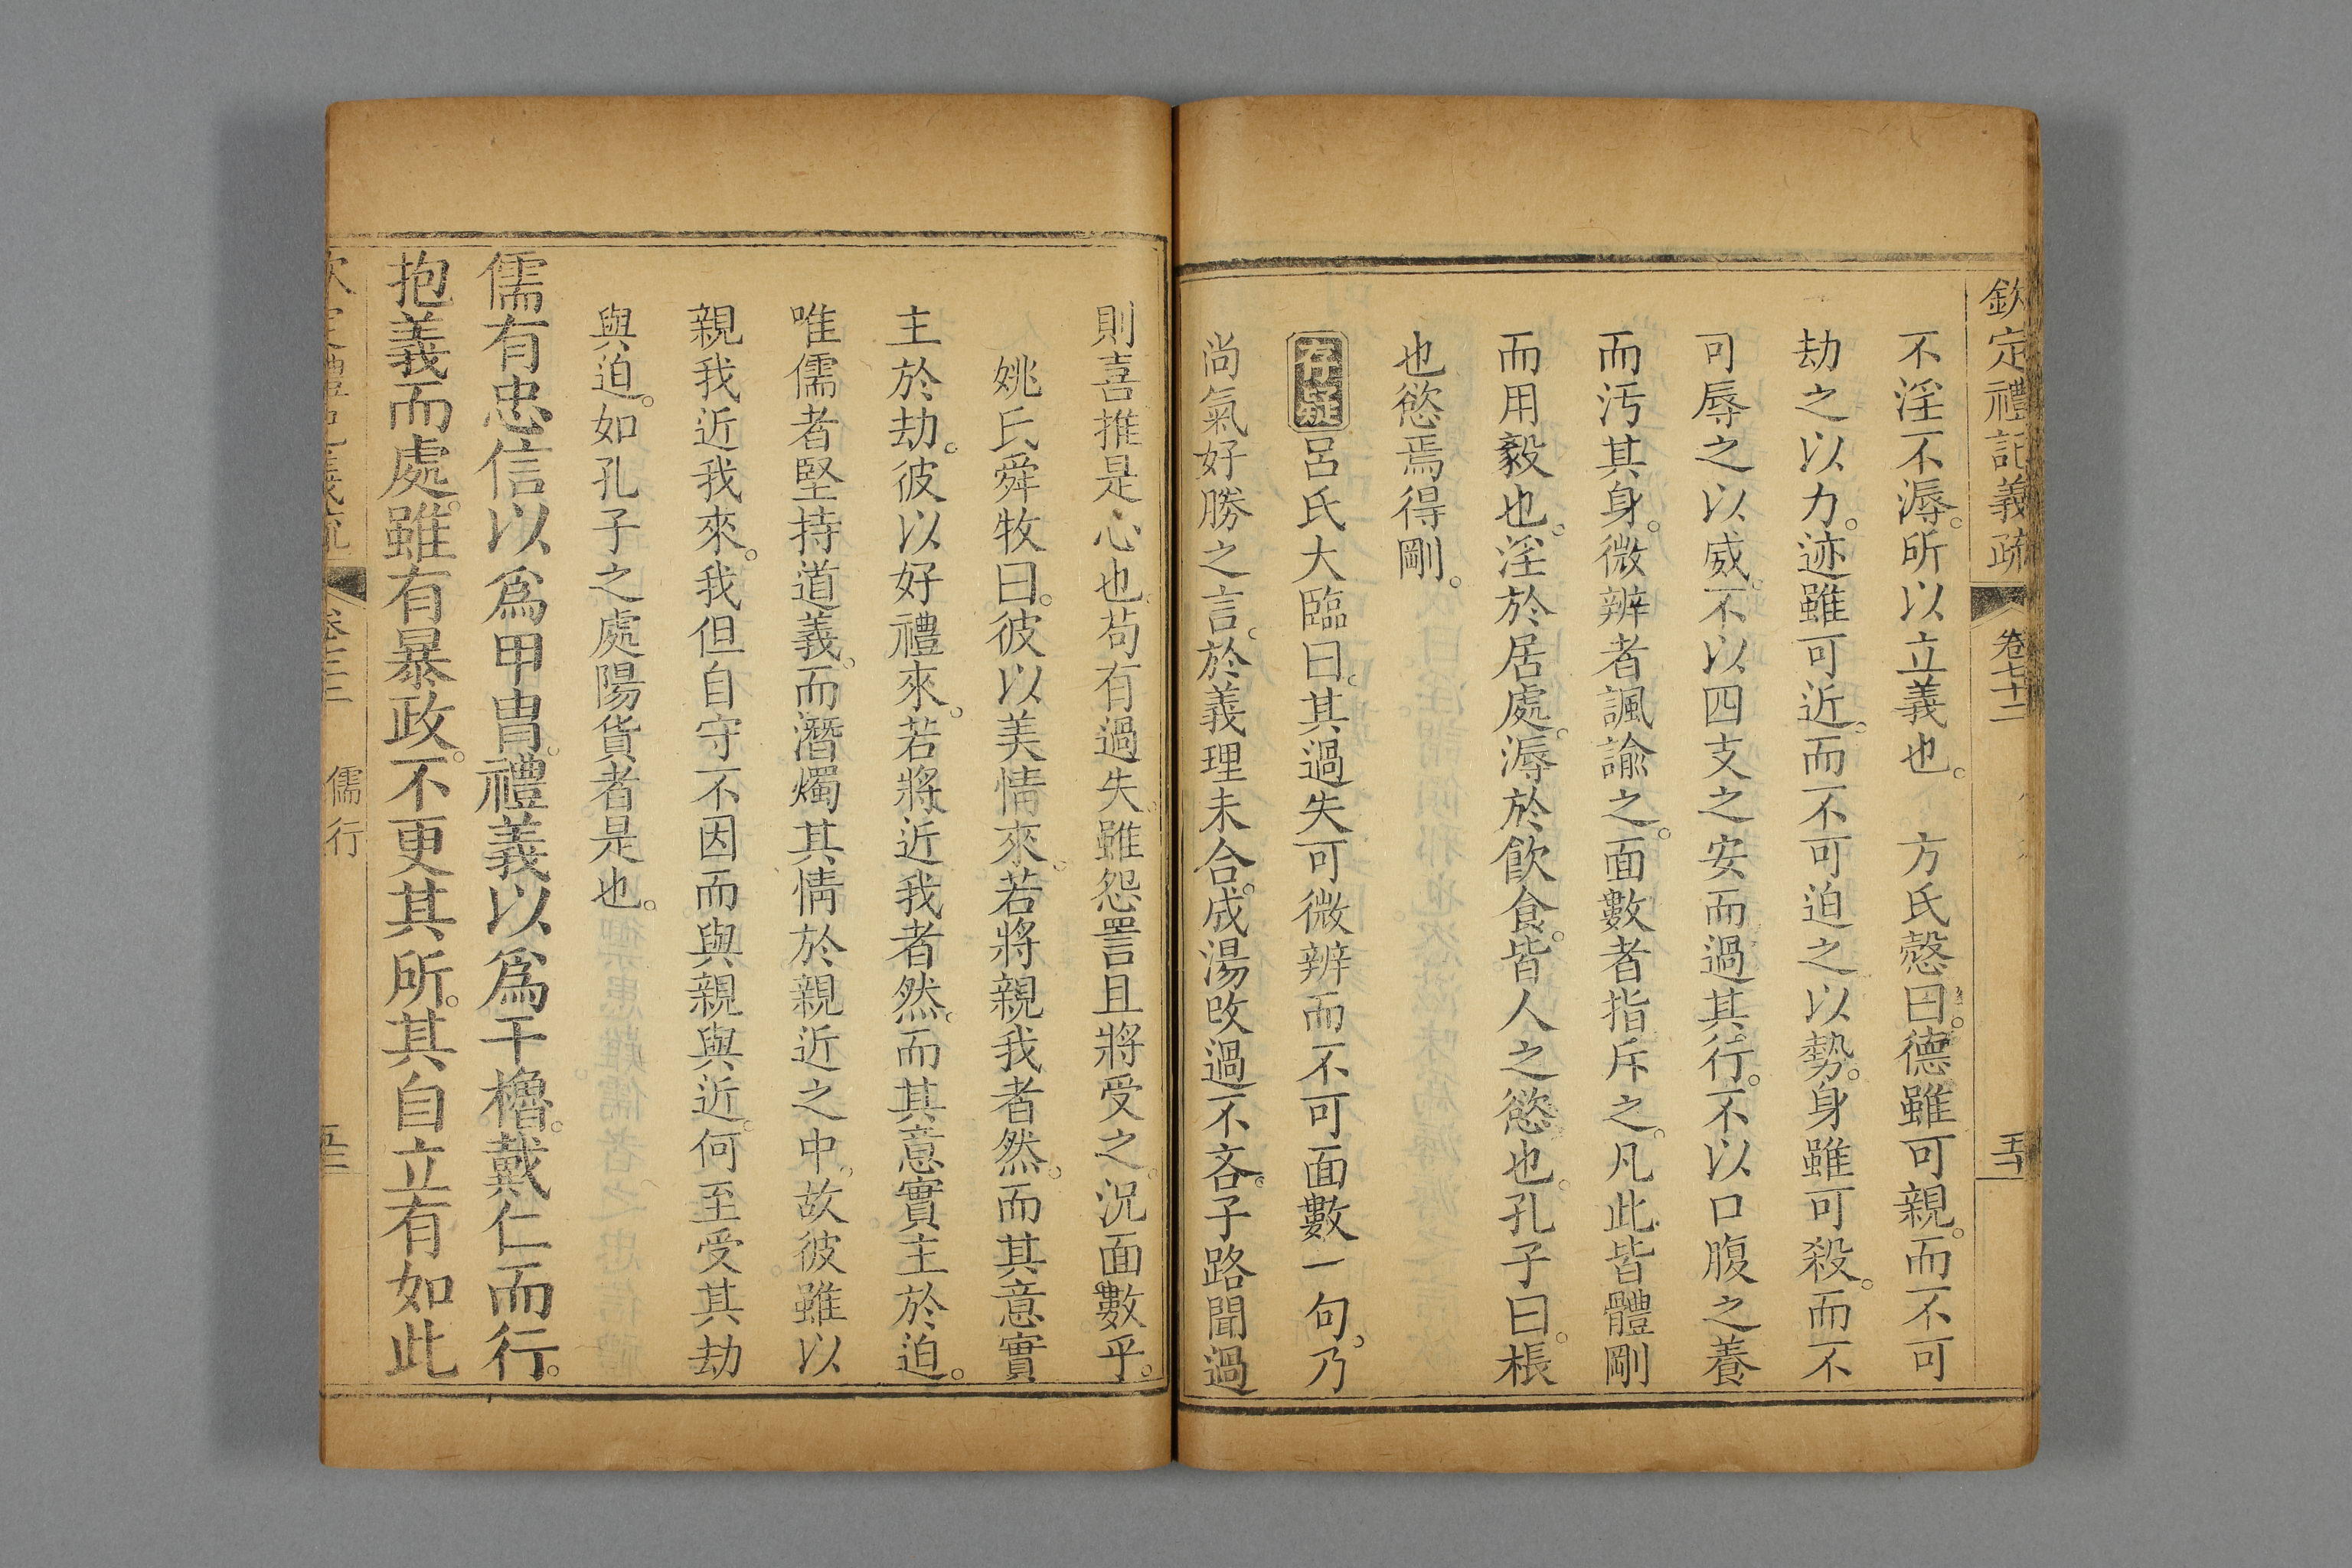 欽定禮記義疏 卷七十二
不淫不溽。所以立義也。 方氏慤曰。德雖可親。而不可
劫之以力。迹雖可近。而不可迫之以勢。身雖可殺。而不
可辱之以威。不以四支之安而過其行。不以口腹之養
而汚其身。微辨者諷諭之。面數者指斥之。凡此皆體剛
而用毅也。淫於居處。溽於飲食。皆人之慾也。孔子曰。棖
也慾焉得剛。
存疑呂氏大臨曰。其過失可微辨而不可面數一句。乃
尚氣好勝之言。於義理未合。成湯改過不吝。子路聞過
則喜推是心也。苟有過失。雖怨詈且將受之。況面數乎。
姚氏舜牧曰。彼以美情來。若將親我者然。而其意實
主於劫。彼以好禮來。若將近我者然。而其意實主於迫。
唯儒者堅持道義。而潛燭其情於親近之中。故彼雖以
親我近我來。我但自守不因而與親與近。何至受其劫
與迫。如孔子之處陽貨者是也。
儒有忠信以爲甲冑。禮義以爲干櫓。戴仁而行。
抱義而處。雖有暴政。不更其所。其自立有如此
儒行